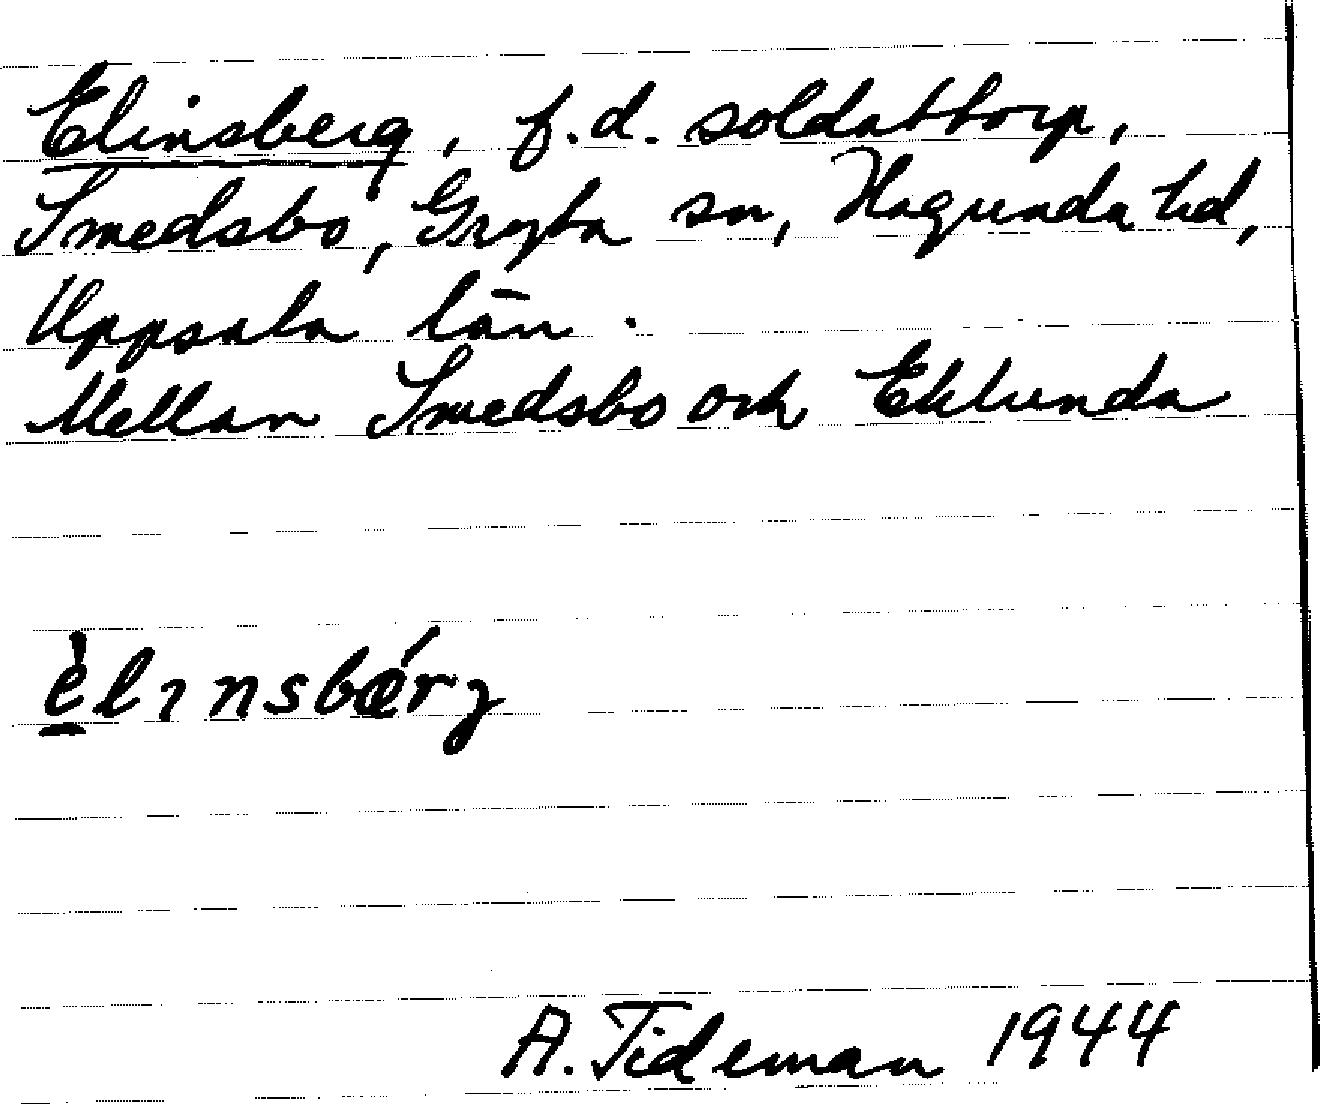 Elinsberg, f.d. soldattorp,
Smedsbo, Gryta sn, Hagunda hd,
Uppsala län.
Mellan Smedsbo och Eklunda
èlınsbérg
A. Tideman 1944